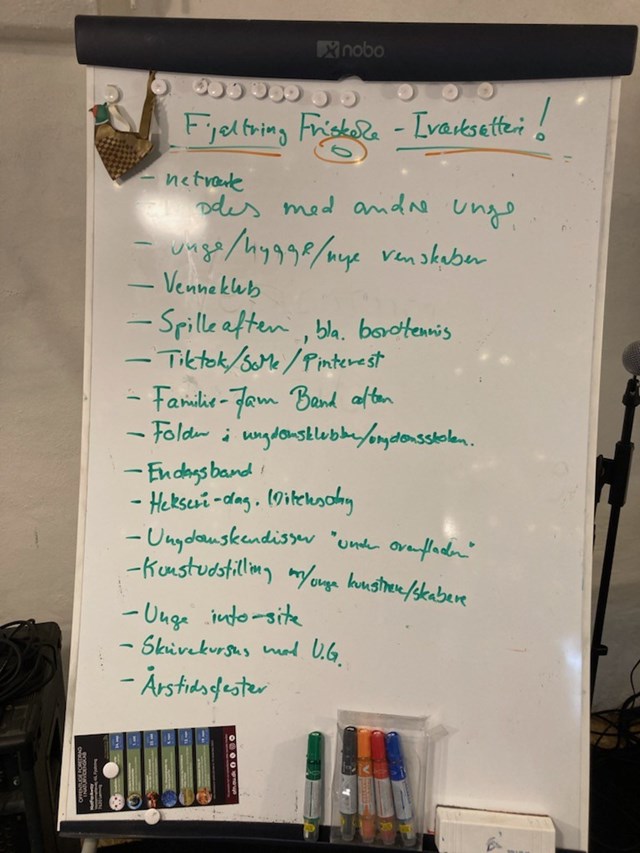 nobo
Fjaltring Friskole - Iværksætteri!
- netværk
- Modes med andre unge
- Unge/hygge/nye venskaber
- Venneklub
- Spilleaften, bla. bordtennis
- Tiktok/SoMe/Pinterest
- Familie-Jam Band aften
- Folder i ungdomsklubber/ungdomsskolen.
- Endagsband
- Hekseri-dag.
- Ungdomskendisser "under overfladen"
- Kunstudstilling m/unge kunstnere/skabere
- Unge info-site
- Skrivekursus med U.G.
- Årstidsfester
OFFENTLIGE FOREDRAG
I NATURVIDENSKAB